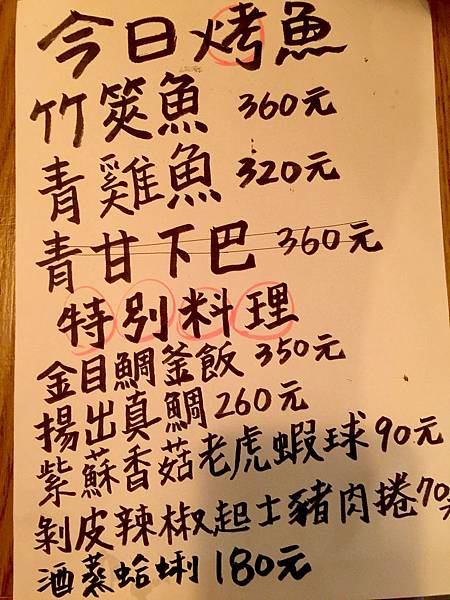 今日烤魚
竹筴魚 360元
青雞魚 320元
青甘下巴 360元
特別料理
金目鯛釜飯 350元
揚出真鯛 260元
紫蘇香菇老虎蝦球 90元
剝皮辣椒起士豬肉捲 70元
酒蒸蛤蜊 180元